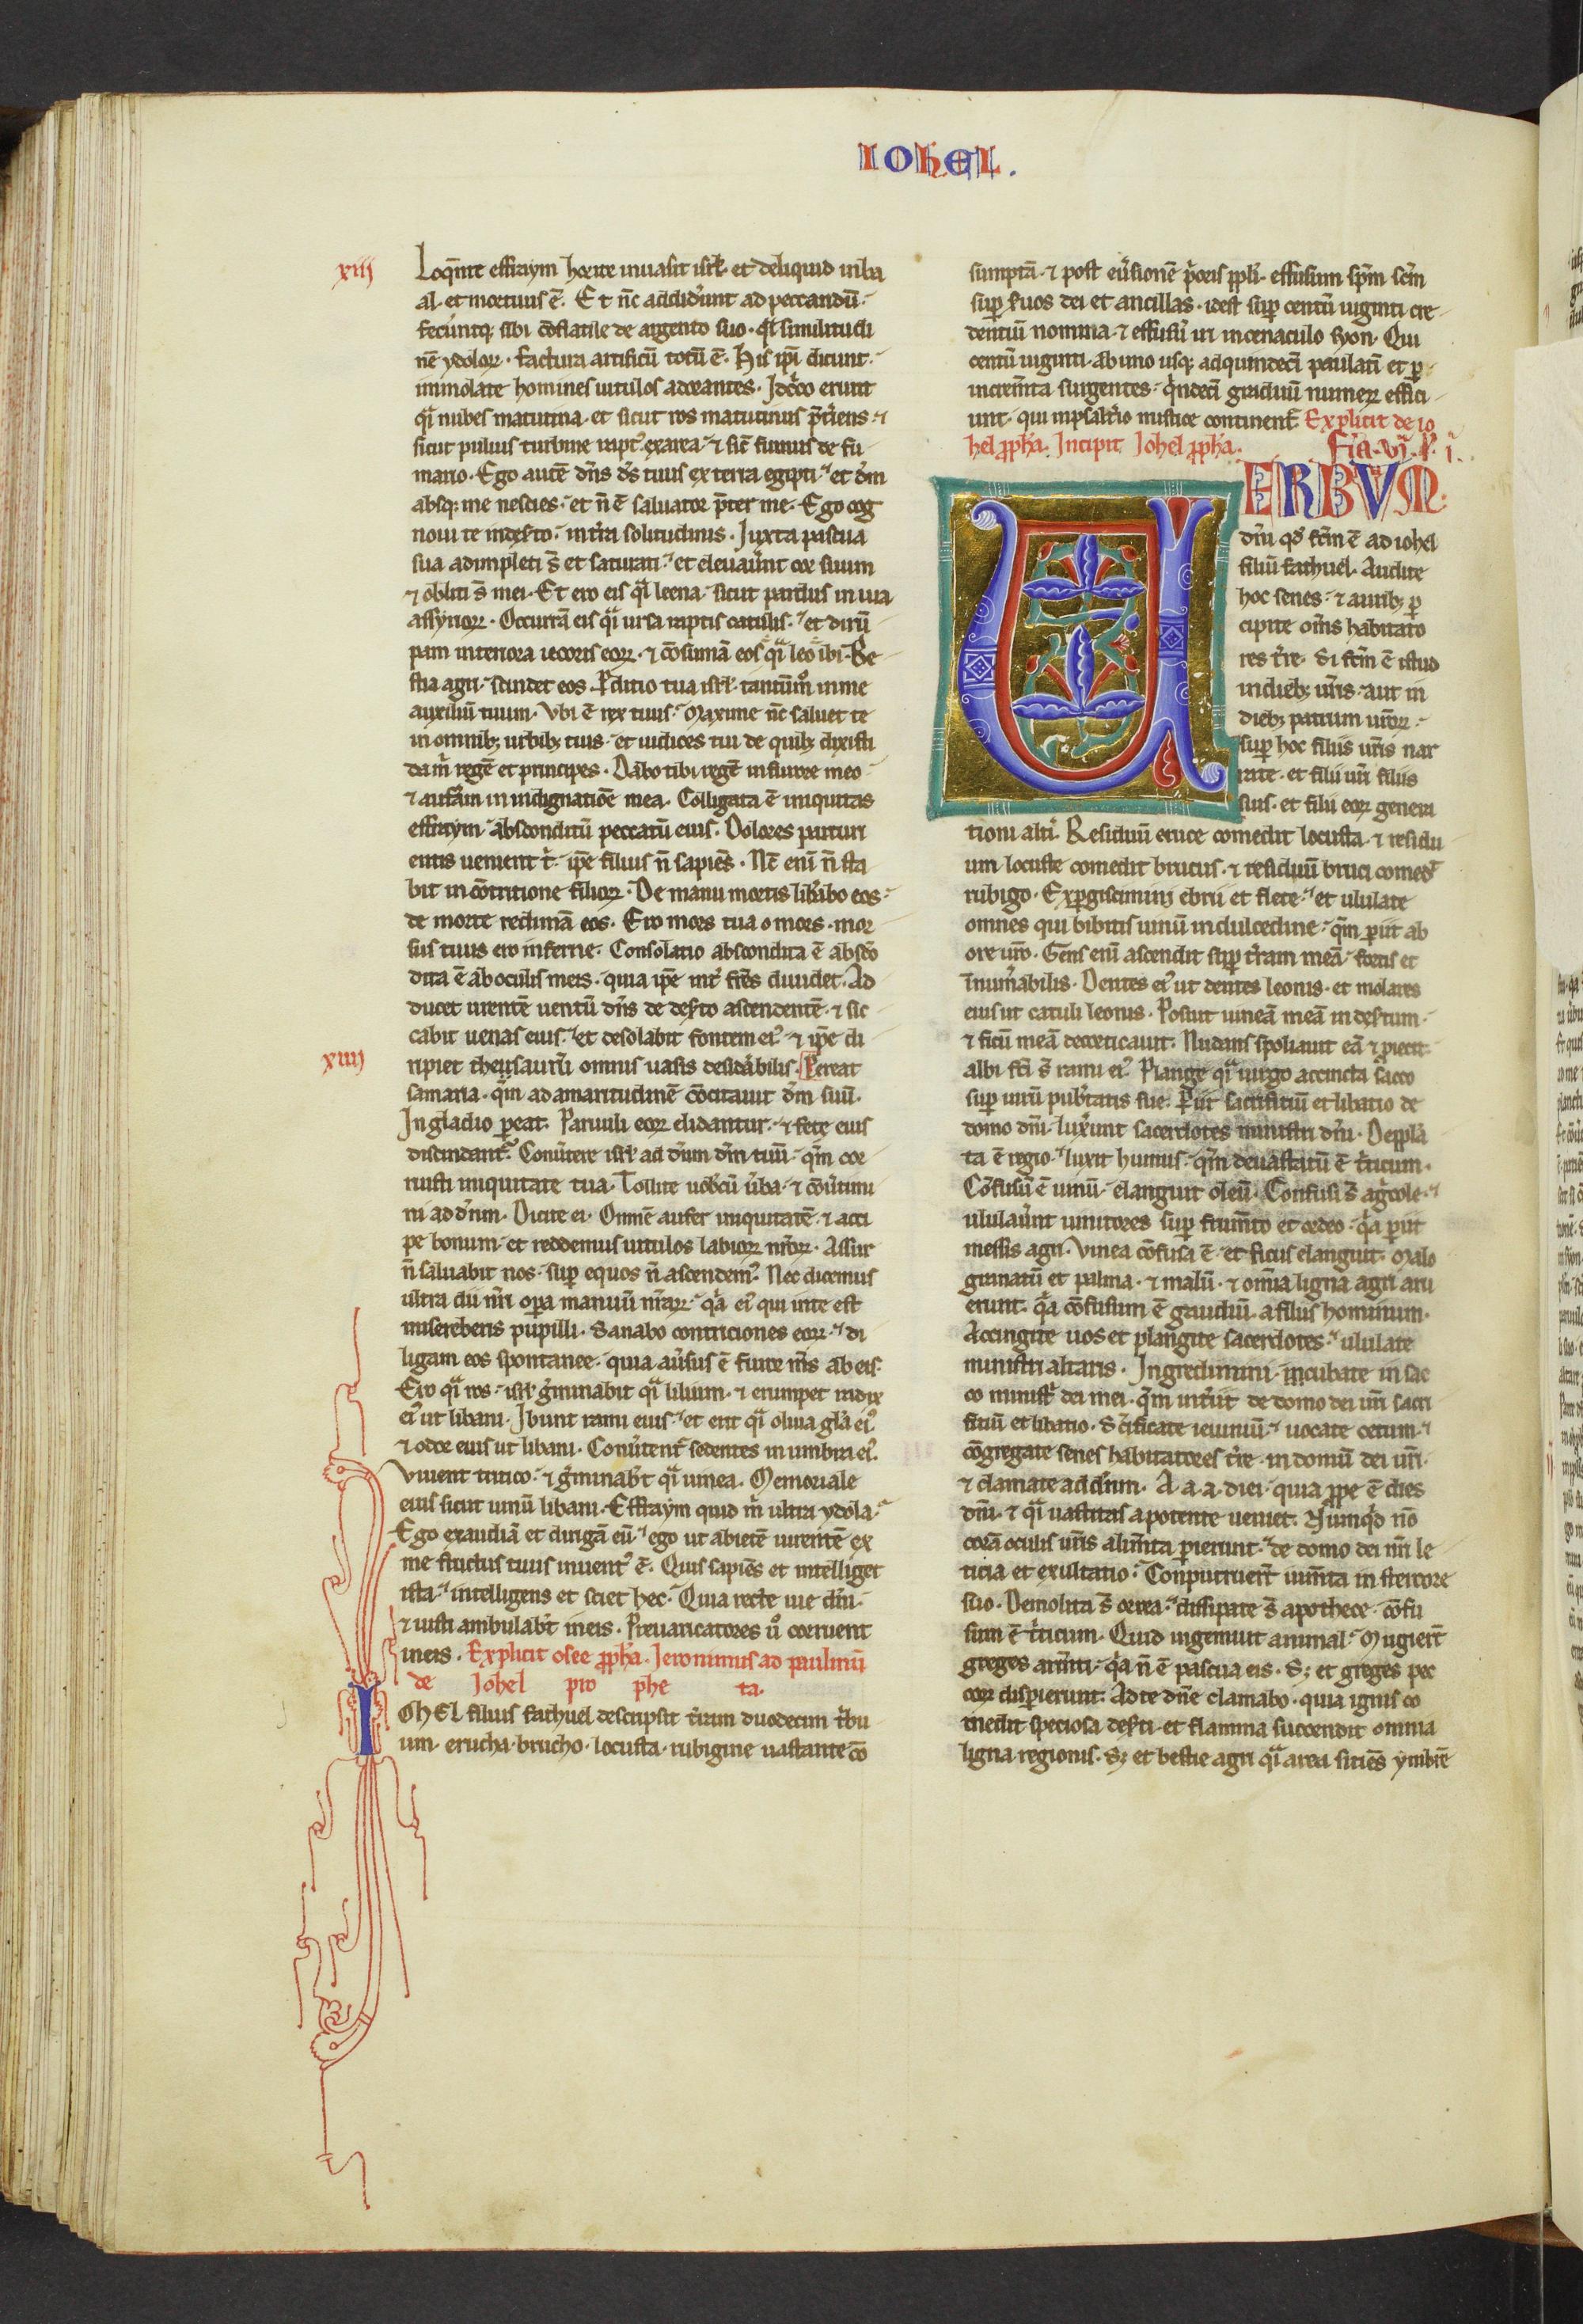 IOHEL.
xiii
Loq̄nte effraym horror inuasit isr̄l. et deliquid in ba
al. et mortuus ē. Et nc̄ addider̄unt ad peccandū.
fecerūntq; sibi cōflatile de argento suo. q̄si similitudi
nē ydolor̄. factura artificū totū ē. His ip̄i dicunt.
immolate homines uitulos adorantes. Idcirco erunt
q̄i nubes matutina. et sicut ros matutinus p̄t̄iens. ⁊
sicut puluis turbine rapt᷒ ex area. ⁊ sic̄ fumus de fu
mario. Ego autē dn̄s ds̄ tuus ex terra egipti. et dm̄
absq; me nescies. et n̄ ē saluator p̄ter me. Ego cog
noui te in deserto. in tr̄a solitudinis. Iuxta pascua
sua adimpleti s̄ et saturati. et eleuauer̄nt cor suum
⁊ obliti s̄ mei. Et ero eis q̄i leena. sicut pardus in uia
assyrior̄. Occurrā eis q̄i ursa raptis catulis. et dirū
pam interiora iecoris eor̄. ⁊ cōsumā eos q̄i leo ibi. Be
stia agri scindet eos. Perditio tua isr̄l. tantūm̊ in me
auxiliū tuum. Vbi ē rex tuus. Maxime nc̄ saluet te
in omnib; urbib; tuis. et iudices tui de quib; dixisti
da m̄ regē et principes. Dabo tibi regē in furore meo
⁊ auferam in indignatiōe mea. Colligata ē iniquitas
effraym. absconditū peccatū eius. Dolores parturi
entis uenient ei. ip̄e filius n̄ sapiēs. Nc̄ enī n̄ sta
bit in cōtritione filior̄. De manu mortis lib̄abo eos.
de morte redimā eos. Ero mors tua o mors. mor
sus tuus ero inferne. Consolatio abscondita ē absco
dita ē ab oculis meis. quia ip̄e int̄ fr̄es diuidet. Ad
ducet urentē uentū dn̄s de deserto ascendentē. ⁊ sic
cabit uenas eius. et desolabit fontem ei᷒. ⁊ ip̄e di
xiiii
ripiet thesaurū omnis uasis desiderabilis. Pereat
samaria. q̄m ad amaritudinē cōcitauit dm̄ suū.
In gladio pereat. Paruuli eor̄ elidantur. ⁊ fete eius
discindant᷒. Conuertere isr̄l ad dn̄m dm̄ tuū. q̄m cor
ruisti iniquitate tua. Tollite uobcū uerba. ⁊ cōuertimi
ni ad dn̄m. Dicite ei. Omnē aufer iniquitatē. ⁊ acci
pe bonum. et reddemus uitulos labior̄ nr̄or̄. Assur
n̄ saluabit nos. sup̄ equos n̄ ascendem᷒. Nec dicemus
ultra dii nr̄i opera manuū nr̄ar̄. q̄a ei᷒ qui in te est
misereberis pupilli. Sanabo contriciones eor̄. di
ligam eos spontanee. quia auersus ē furor m̄s ab eis.
Ero q̄i ros. isr̄l germinabit q̄i lilium. ⁊ erumpet radix
ei᷒ ut libani. Ibunt rami eius. et erit q̄i oliua gla ei᷒
⁊ odor eius ut libani. Conuertent᷒ sedentes in umbra ei᷒.
Viuent tritico. ⁊ germinabt̄ q̄i uinea. Memoriale
eius sicut uinū libani. Effraym quid m̄ ultra ydola.
Ego exaudiā et dirigā eū. ego ut abietē uirentē ex
me fructus tuus inuent᷒ ē. Quis sapiēs et intelliget
ista. intelligens et sciet hec. Quia recte uie dn̄i.
⁊ iusti ambulabt̄ in eis. Preuaricatores ū corruent
in eis. Explicit osee p̄pha. Ieronimus ad paulinū
de Iohel pro phe ta.
IOHEL filius fathuel descripsit tr̄am duodecim t̄bu
um. erucha. brucho. locusta. rubigine uastante cō
sumptā. ⁊ post euersionē p̄oris ppli. effusum sp̄m sc̄m
sup̄ seruos dei et ancillas. idest sup̄ centū uiginti cre
dentiū nomina. ⁊ effusū in in cenaculo syon. Qui
centū uiginti. ab uno usq; ad quindeci paulatī et p̄
increm̄ta surgentes. q̄ndeci graduū numer̄ effici
unt. qui in psalterio mistice continent᷒. Explicit de io
hel p̄pha. Incipit Iohel p̄pha. f̄ia. vi. k. i.
VERBVM
dn̄i qd̄ fc̄m ē ad iohel
filiū fathuel. Audite
hoc senes. ⁊ aurib; p̄
cipite om̄s habitato
res tr̄re. Si fc̄m ē istud
in dieb; ur̄is. aut in
dieb; patrum ur̄or̄.
sup̄ hoc filiis ur̄is nar
rate. et filii ur̄i filiis
suis. et filii eor̄ genera
tioni alt̄i. Residuū eruce comedit locusta. ⁊ residu
um locuste comedit brucus. ⁊ residuū bruci comed᷒
rubigo. Exp̄giscimini ebrii et flete. et ululate
omnes qui bibitis uinū in dulcedine. q̄m periit ab
ore ur̄o. Gens enī ascendit sup̄ tr̄am meā. fortis et
innum̄abilis. Dentes ei᷒ ut dentes leonis. et molares
eius ut catuli leonis. Posuit uineā meā in desertum.
⁊ ficū meā decorticauit. Nudans spoliauit eā ⁊ p̄iecit.
albi fc̄i s̄ rami ei᷒. Plange q̄i uirgo accincta sacco
sup̄ uirū pub̄tatis sue. Periit sacrificiū et libatio de
domo dn̄i. luxerunt sacerdotes ministri dn̄i. Depp̄la
ta ē regio. luxit humus. q̄m deuastatū ē t̄ticum.
Cōfusū ē uinū. elanguit oleū. Confusi s̄ agricole. ⁊
ululauer̄nt uinitores sup̄ frum̄to et ordeo. q̄a periit
messis agri. Vinea cōfusa ē. et ficus elanguit. Malo
granatū et palma. ⁊ malū. ⁊ om̄ia ligna agri aru
erunt. q̄a cōfusum ē gaudiū. a filiis hominum.
Accingite uos et plangite sacerdotes. ululate
ministri altaris. Ingredimini. incubate in sac
co ministri dei mei. q̄m interiit de domo dei ur̄i sacri
ficiū et libatio. Sc̄ificate ieiuniū. ⁊ uocate cetum. ⁊
cōgregate senes habitatores tr̄re. in domū dei ur̄i.
⁊ clamate ad dn̄m. A. a. a. diei. quia p̄pe ē dies
dn̄i. ⁊ q̄i uastitas a potente ueniet. Numq̄d nō
corā oculis ur̄is alim̄ta perierunt. de domo dei nr̄i le
ticia et exultatio. Computruer̄t ium̄ta in stercore
suo. Demolita s̄ orrea. dissipate s̄ apothece. cōfu
sum ē t̄ticum. Quid ingemuit animal. Mugier̄t
greges arm̄ti. q̄a n̄ ē pascua eis. S; et greges pec
cor̄ disperierunt. Ad te dn̄e clamabo. quia ignis co
medit speciosa deserti. et flamma succendit omnia
ligna regionis. S; et bestie agri q̄i area sitiēs ymbrē